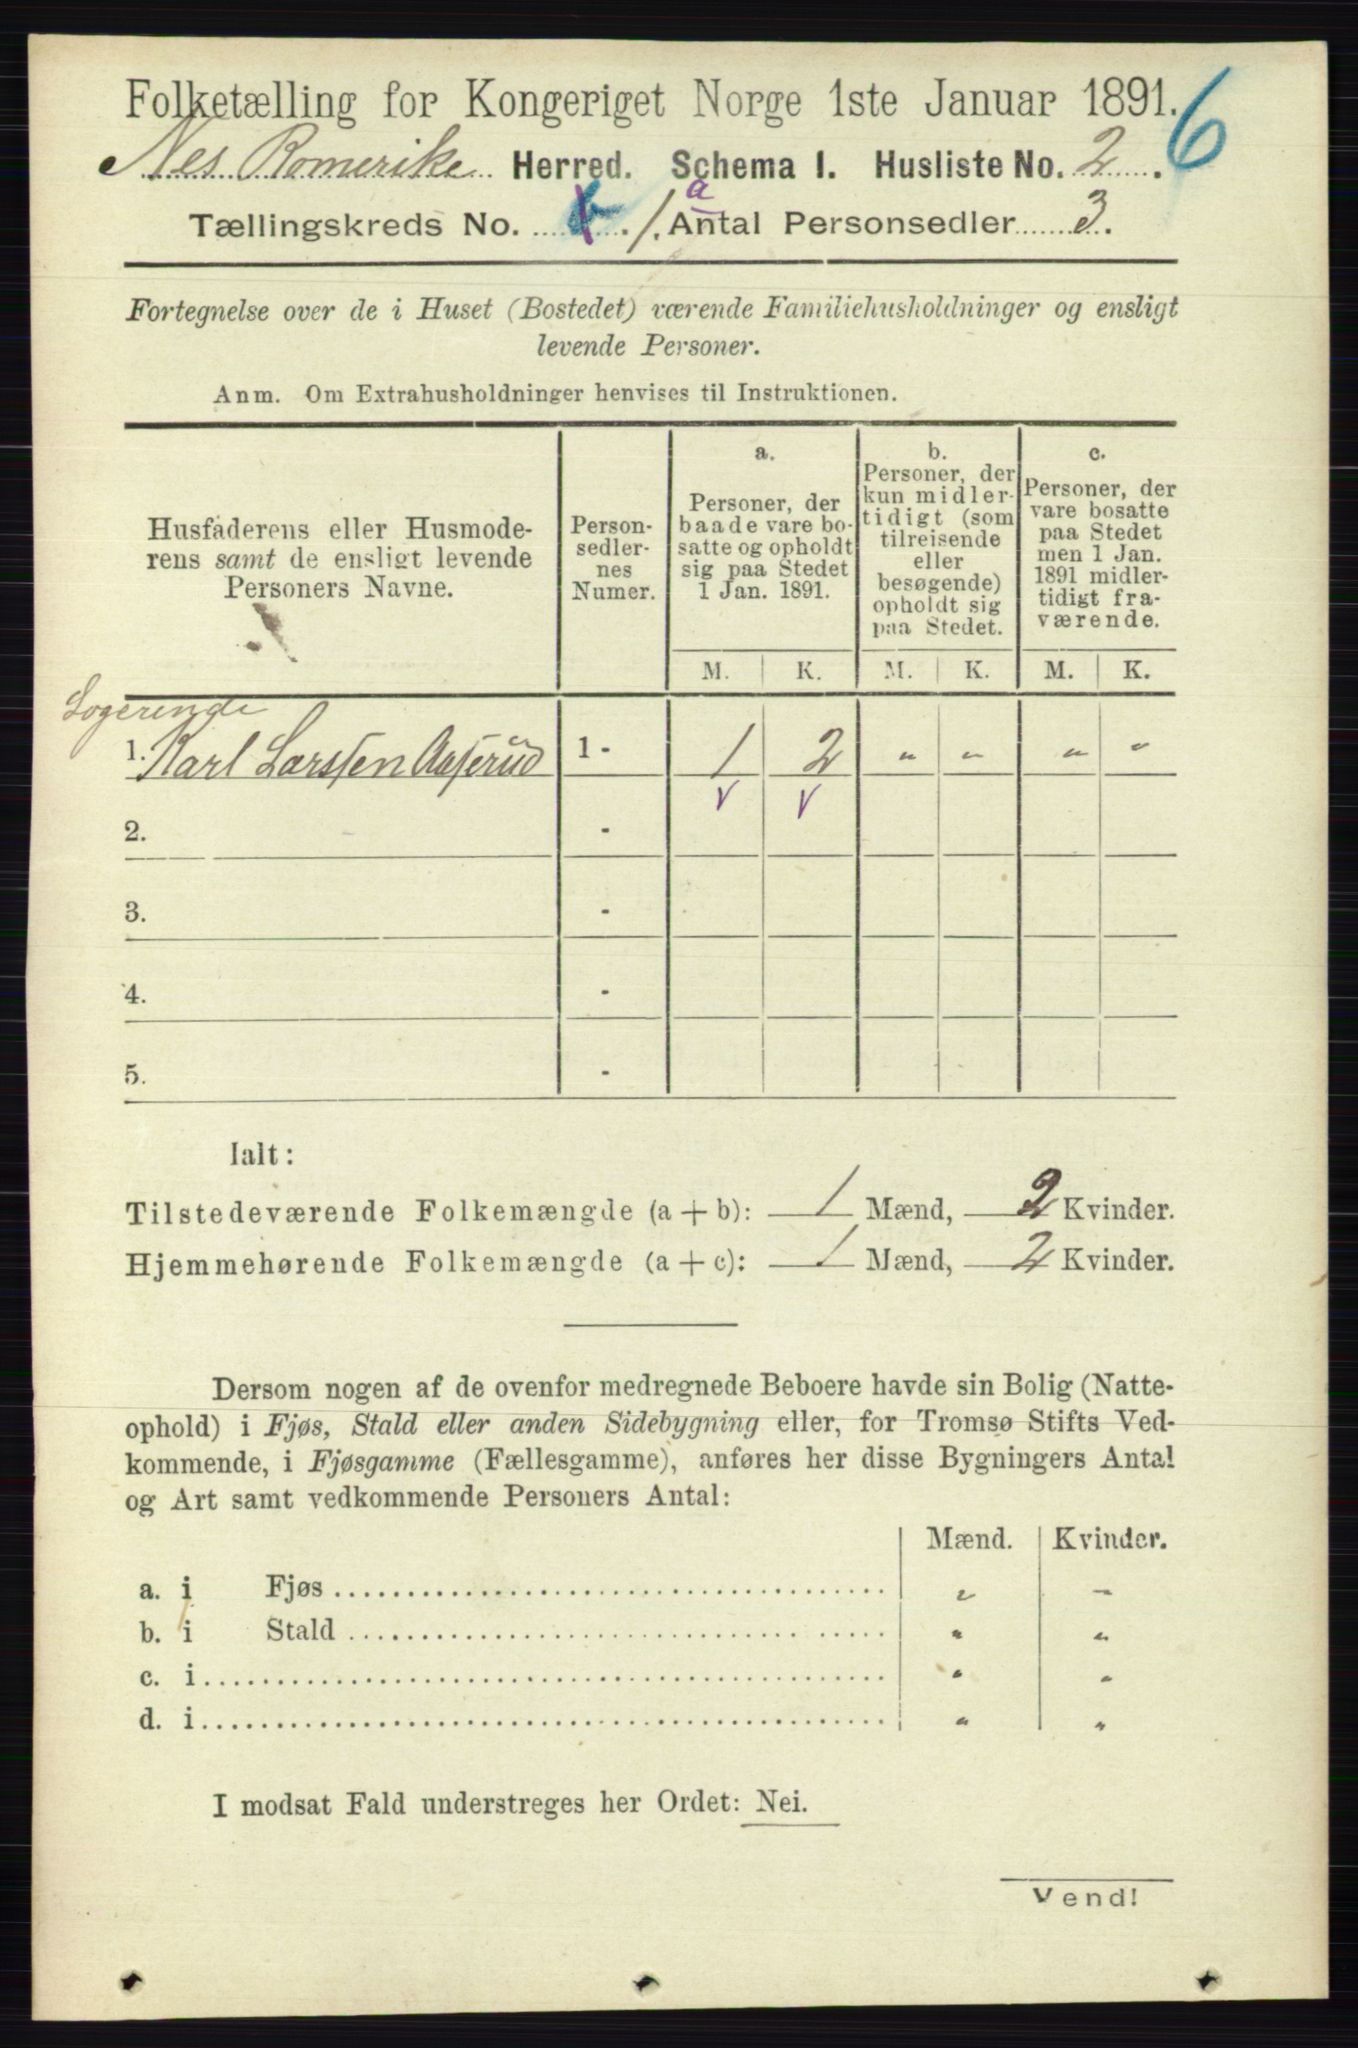 Folketælling for Kongeriget Norge 1ste Januar 1891. 6
Nes Romerike Herred. Schema I. Husliste No. 2.
Tællingskreds No. 1. a Antal Personsedler 3.
Fortegnelse over de i Huset (Bostedet) værende Familiehusholdninger og ensligt
levende Personer.
Anm. Om Extrahusholdninger henvises til Instruktionen.
Husfaderens eller Husmode-
rens samt de ensligt levende
Personers Navne.
Person-
sedler-
nes
Numer.
a.
Personer, der
baade vare bo-
satte og opholdt
sig paa Stedet
1 Jan. 1891.
b.
Personer, der
kun midler-
tidigt (som
tilreisende
eller
besøgende)
opholdt sig
paa Stedet.
c.
Personer, der
vare bosatte
paa Stedet
men 1 Jan.
1891 midler-
tidigt fra-
værende.
M. K. M. K. M. K.
Logerende
1. Karl Larssen Aaserud 1 - 1 2 " " " "
v v
2. -
3. -
4. -
5. -
Ialt:
Tilstedeværende Folkemængde (a + b): 1 Mænd, 2 Kvinder.
Hjemmehørende Folkemængde (a + c): 1 Mænd, 2 Kvinder.
Dersom nogen af de ovenfor medregnede Beboere havde sin Bolig (Natte-
ophold) i Fjøs, Stald eller anden Sidebygning eller, for Tromsø Stifts Ved-
kommende, i Fjøsgamme (Fællesgamme), anføres her disse Bygningers Antal
og Art samt vedkommende Personers Antal:
Mænd. Kvinder.
a. i Fjøs " "
b. i Stald " "
c. i " "
d. i " "
I modsat Fald understreges her Ordet: Nei.
Vend!